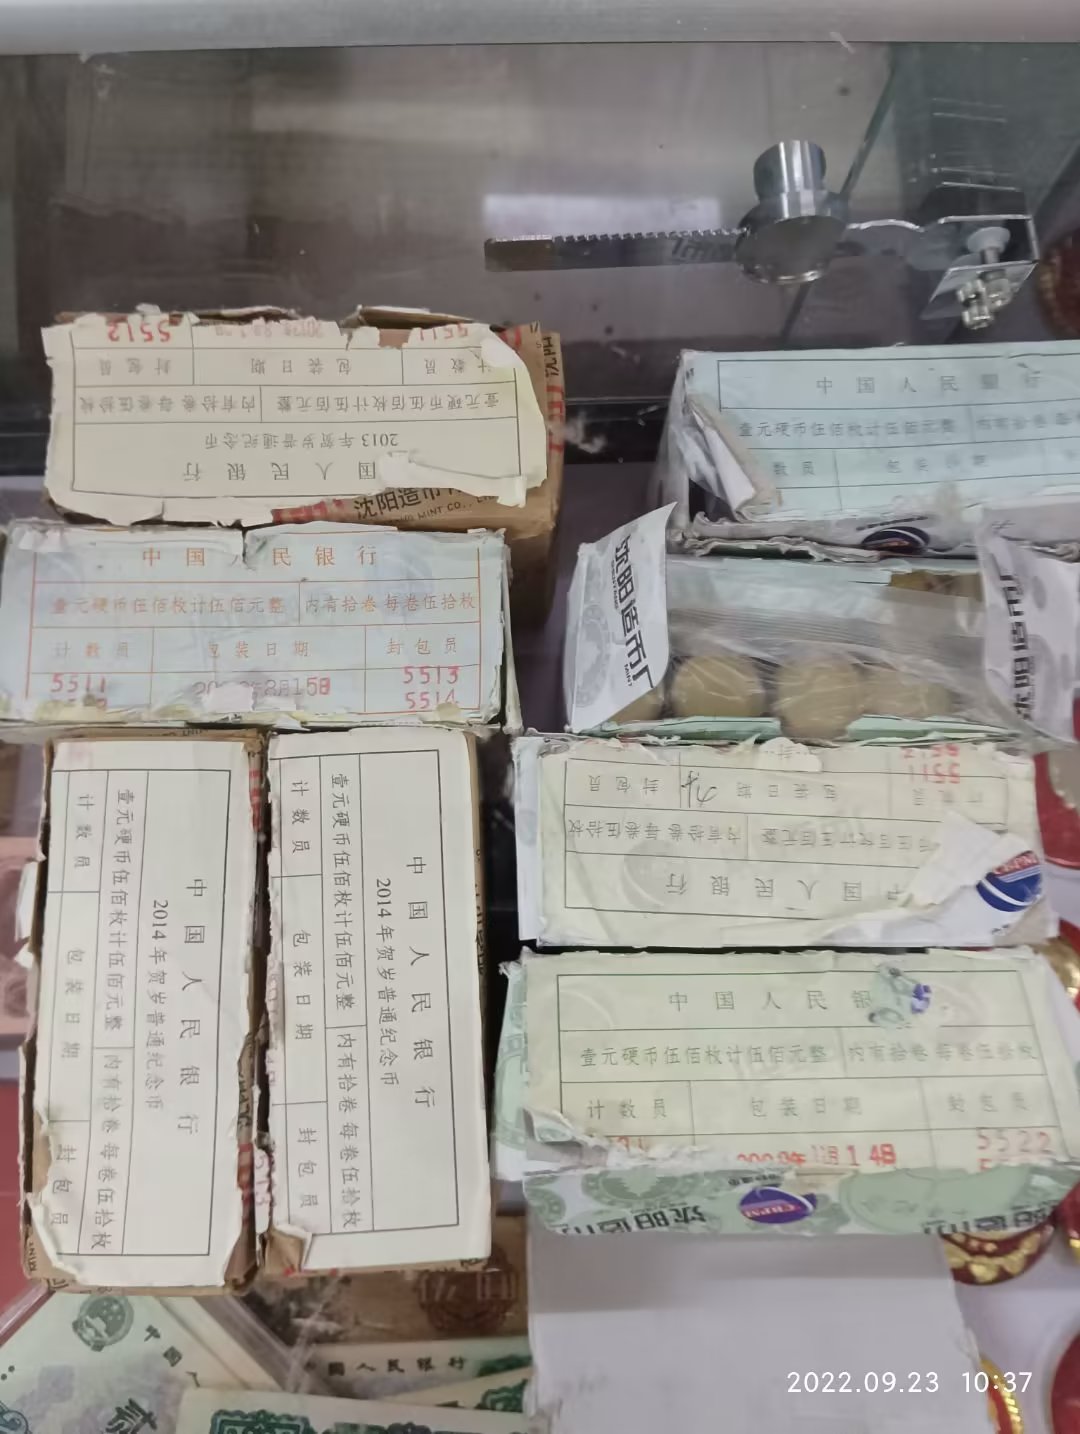 5512
5511
计数员
包装日期
封包员
壹元硬币伍佰枚计伍佰元整
内有拾卷 每卷伍拾枚
2013年贺岁普通纪念币
国人民银行
沈阳造币
MINT CO.,
中国人民银行
壹元硬币伍佰枚计伍佰元整
内有拾卷 每卷伍拾枚
计数员
包装日期
封包员
5511
8月15日
5513
5514
中国人民银行
2014年贺岁普通纪念币
壹元硬币伍佰枚计伍佰元整
内有拾卷 每卷伍拾枚
计数员
包装日期
封包员
中国人民银行
2014年贺岁普通纪念币
壹元硬币伍佰枚计伍佰元整
内有拾卷 每卷伍拾枚
计数员
包装日期
封包员
中国人民银行
壹元硬币伍佰枚计伍佰元整
内有拾卷
数员
包装日期
沈阳造币厂
MINT
5511
封包员
包装日期
内有拾卷 每卷伍拾枚
伍佰枚计伍佰元整
中国人民银行
中国人民银
壹元硬币伍佰枚计伍佰元整
内有拾卷 每卷伍拾枚
计数员
包装日期
封包员
14日
5522
沈阳造币
CBPM
国人民银行
2022.09.23 10:37